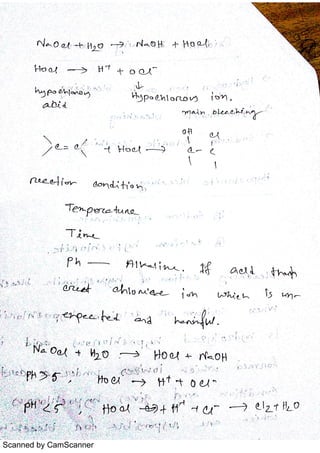 NaOcl + H₂O → NaOH + HOcl
Hocl → H⁺ + ocl⁻
hypochlorous ↓
acid Hypochlorous ion.
main bleaching
OH cl
>c=c< + Hocl → c - c
reaction condition,
Temperature
Time
Ph — Alkaline. If acid than
creat chloride ion which is un-
expected and harmful.
NaOcl + H₂O → HOcl + NaOH
PH>5, Hocl → H⁺ + ocl⁻
pH<5, Hocl ↔ + H⁺ + cl⁻ → cl₂+H₂O
Scanned by CamScanner